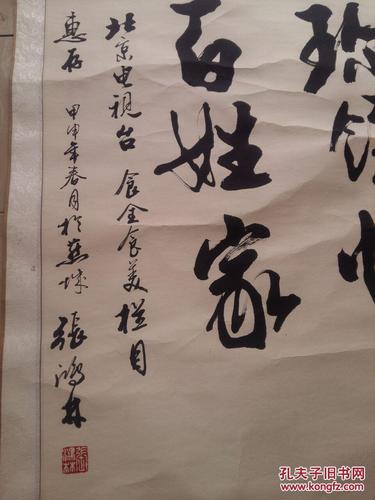 百姓家
北京电视台 食全食美 栏目
惠存 甲申年春月於蕉城 張鸿林
孔夫子旧书网
WWW.KONGFZ.COM